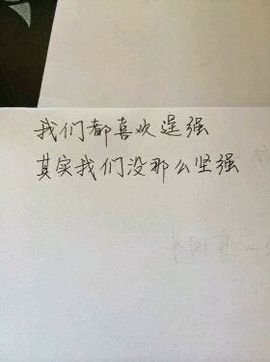 我们都喜欢逞强
其实我们没那么坚强